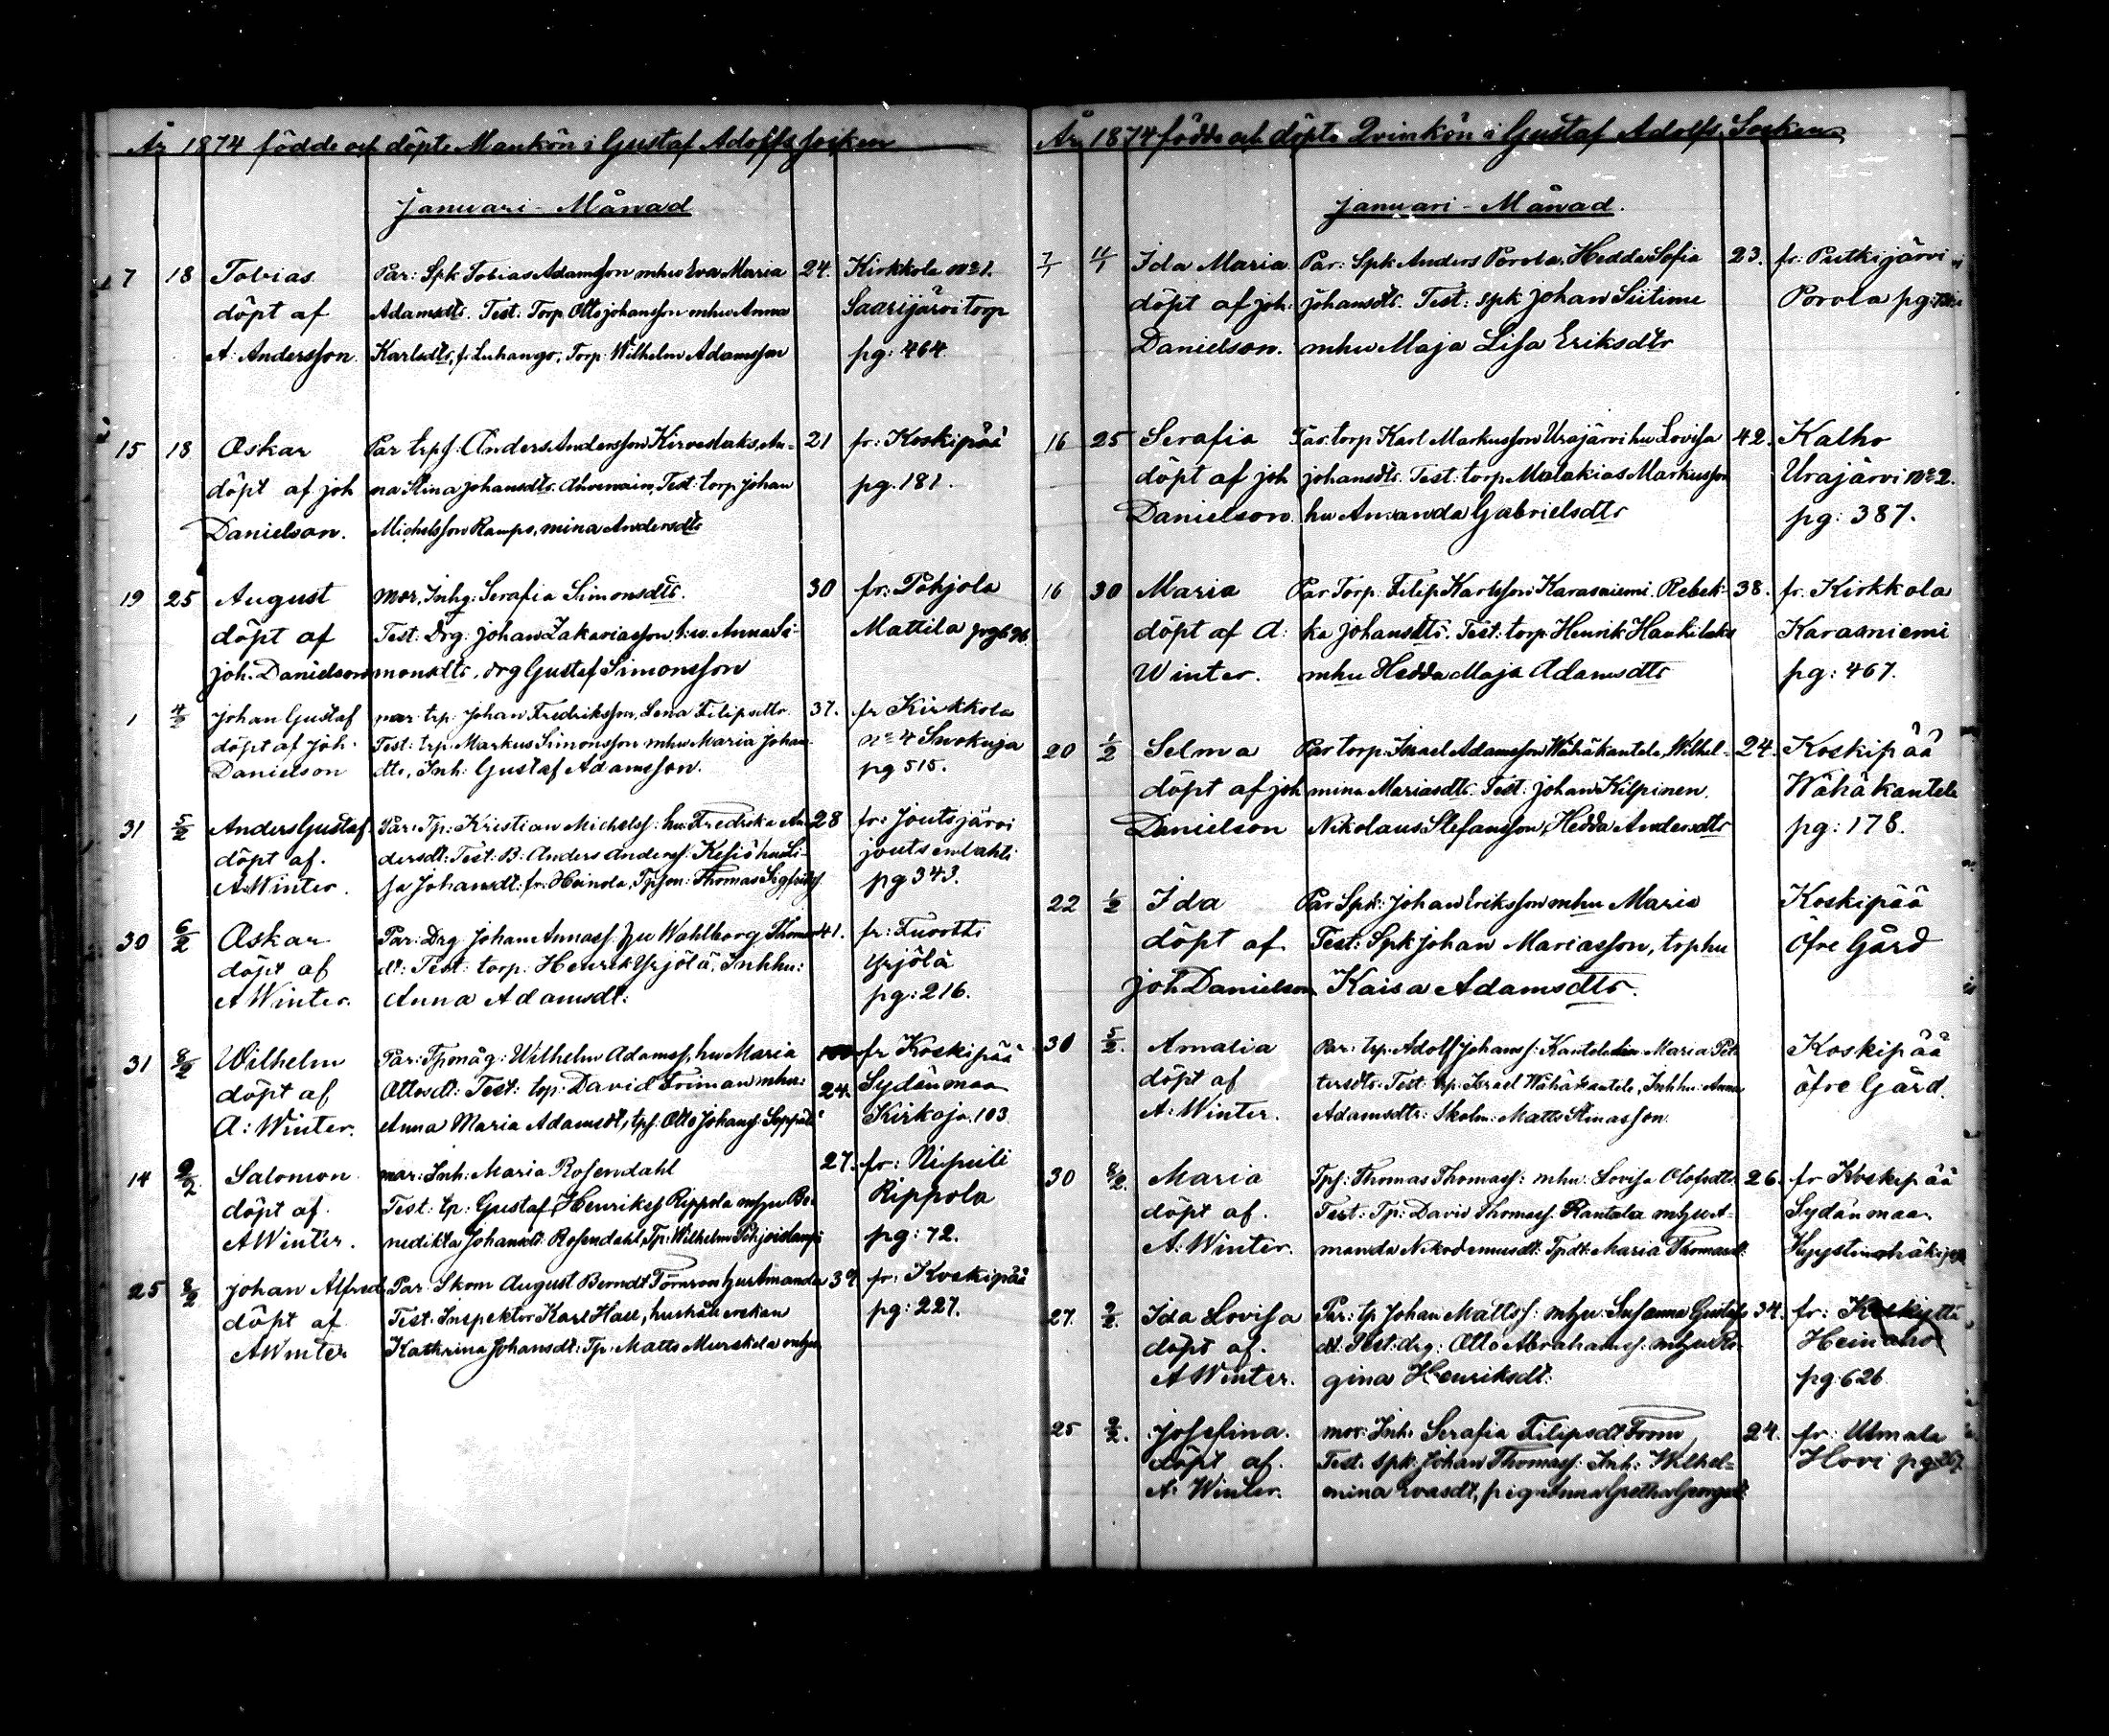 År 1874 födde och döpte Mankön i Gustaf Adolfs socken
Januari - Månad
7 18 Tobias Par: Spk Tobias Adamsson mhu Eva Maria 24. Kirkkola No 1.
döpt af Adamsdtr. Test: Torp Otto Johansson mhu Anna Saarijärvi torp
A: Andersson. Karlsdtr, f. Luhango, Torp: Wilhelm Adamsson pg: 464.
15 18 Oskar Par trpf: Anders Andersson Kirvestaks, An- 21 fr: Koskipää
döpt af Joh na Stina Johansdtr. Ahvenain, Test: torp Johan pg. 181.
Danielson. Michelsson Rampo, mina Andersdtr
19 25 August mor, Inhg: Serafia Simonsdtr. 30 fr: Pohjola
döpt af Test: Drg: Johan Zakariasson, h:u. Anna Si- Mattila
Joh. Danielson monsdtr, drg Gustaf Simonsson
1 4/2 Johan Gustaf par: trp: Johan Fredriksson, Lena Filipsdtr. 37. fr Kirkkola
döpt af Joh. Test: trp: Markus Simonsson mhu Maria Johan- No 4 Snokuja
Danielson dtr, Inh: Gustaf Adamsson. pg 515.
31 5/2 Anders Gustaf Par: Tp: Kristian Michelss: hu: Fredrika An- 28 fr: Joutsjärvi
döpt af. dersdt: Test: B: Anders Anderss: Kesiö hu Li- joutsenlahti
A Winter. sa Johansdt: fr: Heinola, Tpson: Thomas Sigfridsf. pg 343.
30 6/2 Oskar Par: Drg Johan Annass: hu Wahlborg Thomas 41. fr:
döpt af dt: Test: torp: Henrik Yrjölä, Inhhu: Yrjölä
A Winter. Anna Adamsdt: pg: 216.
31 8/2 Wilhelm Par: Tpmåg: Wilhelm Adamss, hu Maria fr Koskipää
döpt af Ottosdt: Test: tp: David Friman mhu: 24. Sydänmaa
A: Winter. Anna Maria Adamsdt, tpf: Otto Johans: Seppälä Kirkoja 103
14 9/2 Salomon mor: Inh: Maria Rosendahl 27. fr: Nipuli
döpt af. Test: tp: Gustaf Henrikss Rippola mhu Be- Rippola
A Winter. nedikta Johansdt: Rosendahl, Tp: Wilhelm Pohjoislampi pg: 72.
25 8/2 Johan Alfred Par: Skom August Berndt Törnron hu Amanda 39. fr: Koskipää
döpt af Test: Inspektor Karl Hall, hushållerskan pg: 227.
A Winter Kathrina Johansdt: Tp: Matts Murskela mhu
År 1874 födde och döpte Qvinkön i Gustaf Adolfs Socken
Januari - Månad.
7/1 11/1 Ida Maria Par: Spk Anders Porola, Hedda Sofia 23. fr: Putkijärvi
döpt af Joh. Johansdtr. Test: spk Johan Siitime Porola pg:
Danielson. mhu Maja Lisa Eriksdtr
16 25 Serafia Par: torp Karl Markusson Urajärvi hu Lovisa 42. Kalho
döpt af Joh Johansdtr. Test: torp Malakias Markusson Urajärvi No 2.
Danielson. hu Amanda Gabrielsdtr pg: 387.
16 30 Maria Par Torp: Filip Karlsson Karasniemi, Rebek- 38. fr. Kirkkola
döpt af A: ka Johansdtr. Test: torp: Henrik Haukilaks Karasniemi
Winter. mhu Hedda Maja Adamsdtr pg: 467.
20 1/2 Selma Par torp: Israel Adamsson Wähäkantele, Wilhel- 24. Koskipää
döpt af Joh mina Mariasdtr. Test: Johan Kilpinen. Wähäkantele
Danielson Nikolaus Stefansson, Hedda Andersdtr pg: 178.
22 1/2 Ida Par Spk: Johan Eriksson mhu Maria Koskipää
döpt af Test: Spk Johan Mariasson, torphu Öfre Gård
Joh Danielson Kaisa Adamsdtr.
30 5/2. Amalia Par: trp: Adolf Johanss: Kantele hu Maria Pet- Koskipää
döpt af tersdtr. Test: trp: Israel Wähäkantele, Inhhu: Anna öfre Gård.
A: Winter. Adamsdtr: Skolm: Matts Stinasson.
30 8/2. Maria Tpf: Thomas Thomass: mhu: Lovisa Olofsdtr. 26. fr Koskipää
döpt af. Test: Tp: David Thomass: Rantala mhu A- Sydänmaa.
A: Winter. manda Nikodemusdt: Tpdt: Maria Thomasdt.
27. 9/2. Ida Lovisa Par: tp Johan Mattss: mhu: Susanna Gustafs 34. fr:
döpt af. dt. Test: drg: Otto Abrahamss: mhu Re- Heinaho
A Winter. gina Henriksdt: pg: 626
25 9/2. Josefina. mor: Inh: Serafia Filipsdt From 24. fr: Ulmala
döpt af. Test: spk: Johan Thomass: Inh: Wilhel- Hovi pg: 267.
A: Winter. mina Evasdt, pig: Anna Gretha Georgsdt.